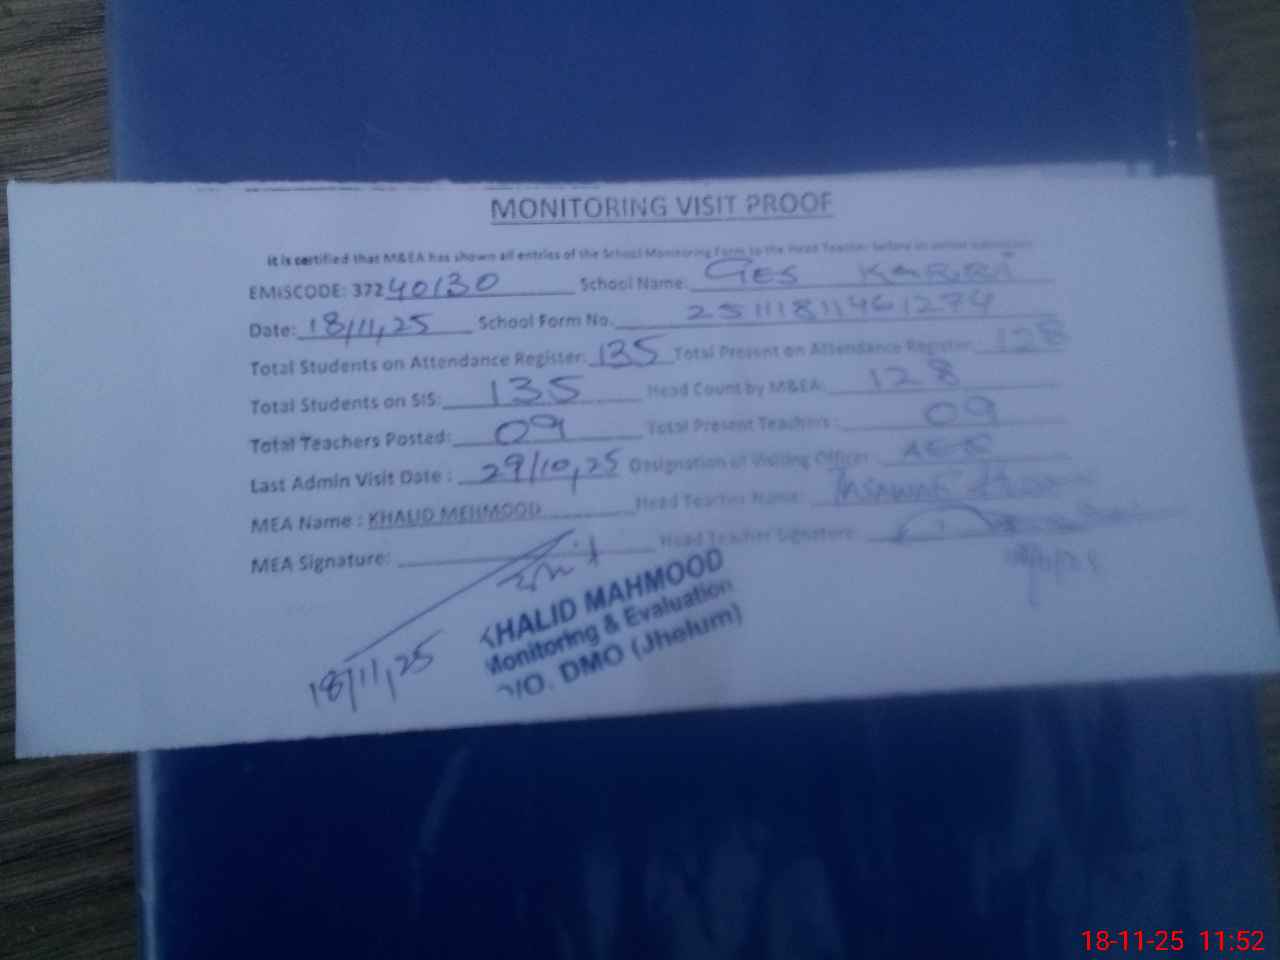 MONITORING VISIT PROOF
It is certified that M&EA has shown all entries of the School Monitoring Form to the Head Teacher before its online submission
EMISCODE: 37240130 School Name: GES KARRA
Date: 18/11,25 School Form No. 2511181146 1274
Total Students on Attendance Register: 135 Total Present on Attendance Register: 128
Total Students on SIS: 135 Head Count by M&EA: 128
Total Teachers Posted: 09 Total Present Teachers: 09
Last Admin Visit Date: 29/10,25 Designation of Visiting Officer:
MEA Name: KHALID MEHMOOD Head Teacher Name:
MEA Signature: Head Teacher Signature:
18/11,25
KHALID MAHMOOD
Monitoring & Evaluation
O/O. DMO (Jhelum)
18-11-25 11:52